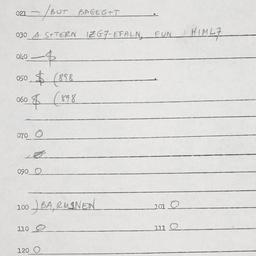 021 — /BUT BAGEG+T .
030 A S+TERN IZG7-EFALN, FUN HIML7
040 —$
050 $ (898 .
060 $ (898
070 O
090 O
100 )BA,RUSNEN 101 O
110 O 111 O
120 O